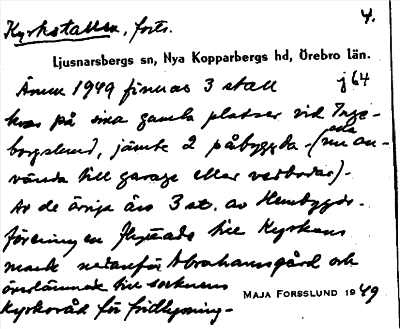 Kyrkstallen, forts. 4.
Ljusnarsbergs sn, Nya Kopparbergs hd, Örebro län.
Ännu 1949 finnas 3 stall j 64
kvar på sina gamla platser vid Inge-
borgslund, jämte 2 påbyggda - (nu an-
vända till garage eller vedbodar) -
Av de övriga äro 3 st. av Hembygds-
föreningen flyttade till Kyrkans
mark nedanför Abrahamsgård och
överlämnade till socknens
Kyrkoråd för fridlysning -
MAJA FORSSLUND 1949